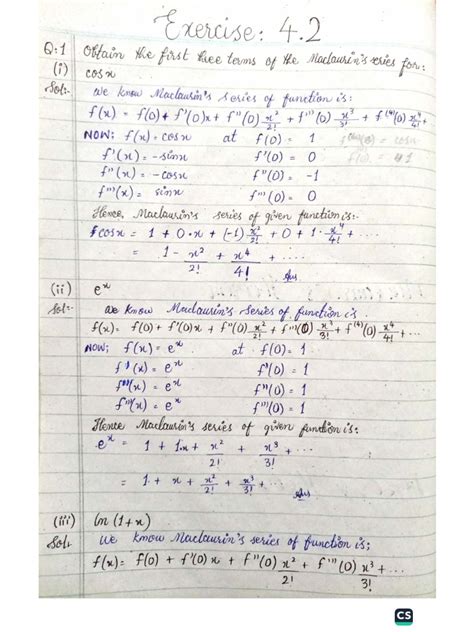 Exercise: 4.2
Q:1 Obtain the first three terms of the Maclaurin's series for:
(i) cosx
Sol:- we know Maclaurin's series of function is:
f(x) = f(0) + f'(0)x + f''(0) x²/2! + f'''(0) x³/3! + f⁽⁴⁾(0) x⁴/4! +
NOW: f(x) = cosx at f(0) = 1
f'(x) = -sinx f'(0) = 0
f''(x) = -cosx f''(0) = -1
f'''(x) = sinx f'''(0) = 0
Hence, Maclaurin's series of given function is:-
cosx = 1 + 0·x + (-1) x²/2! + 0 + 1· x⁴/4! + ....
= 1 - x²/2! + x⁴/4! + .... Ans
(ii) eˣ
Sol:- we know Maclaurin's series of function is
f(x) = f(0) + f'(0)x + f''(0) x²/2! + f'''(0) x³/3! + f⁽⁴⁾(0) x⁴/4! + ...
NOW; f(x) = eˣ at f(0) = 1
f'(x) = eˣ f'(0) = 1
f''(x) = eˣ f''(0) = 1
f'''(x) = eˣ f'''(0) = 1
Hence Maclaurin's series of given function is:
eˣ = 1 + 1.x + x²/2! + x³/3! + ....
= 1 + x + x²/2! + x³/3! + .... Ans
(iii) ln(1+x)
Sol:. we know Maclaurin's series of function is;
f(x) = f(0) + f'(0)x + f''(0) x²/2! + f'''(0) x³/3! + ...
CS